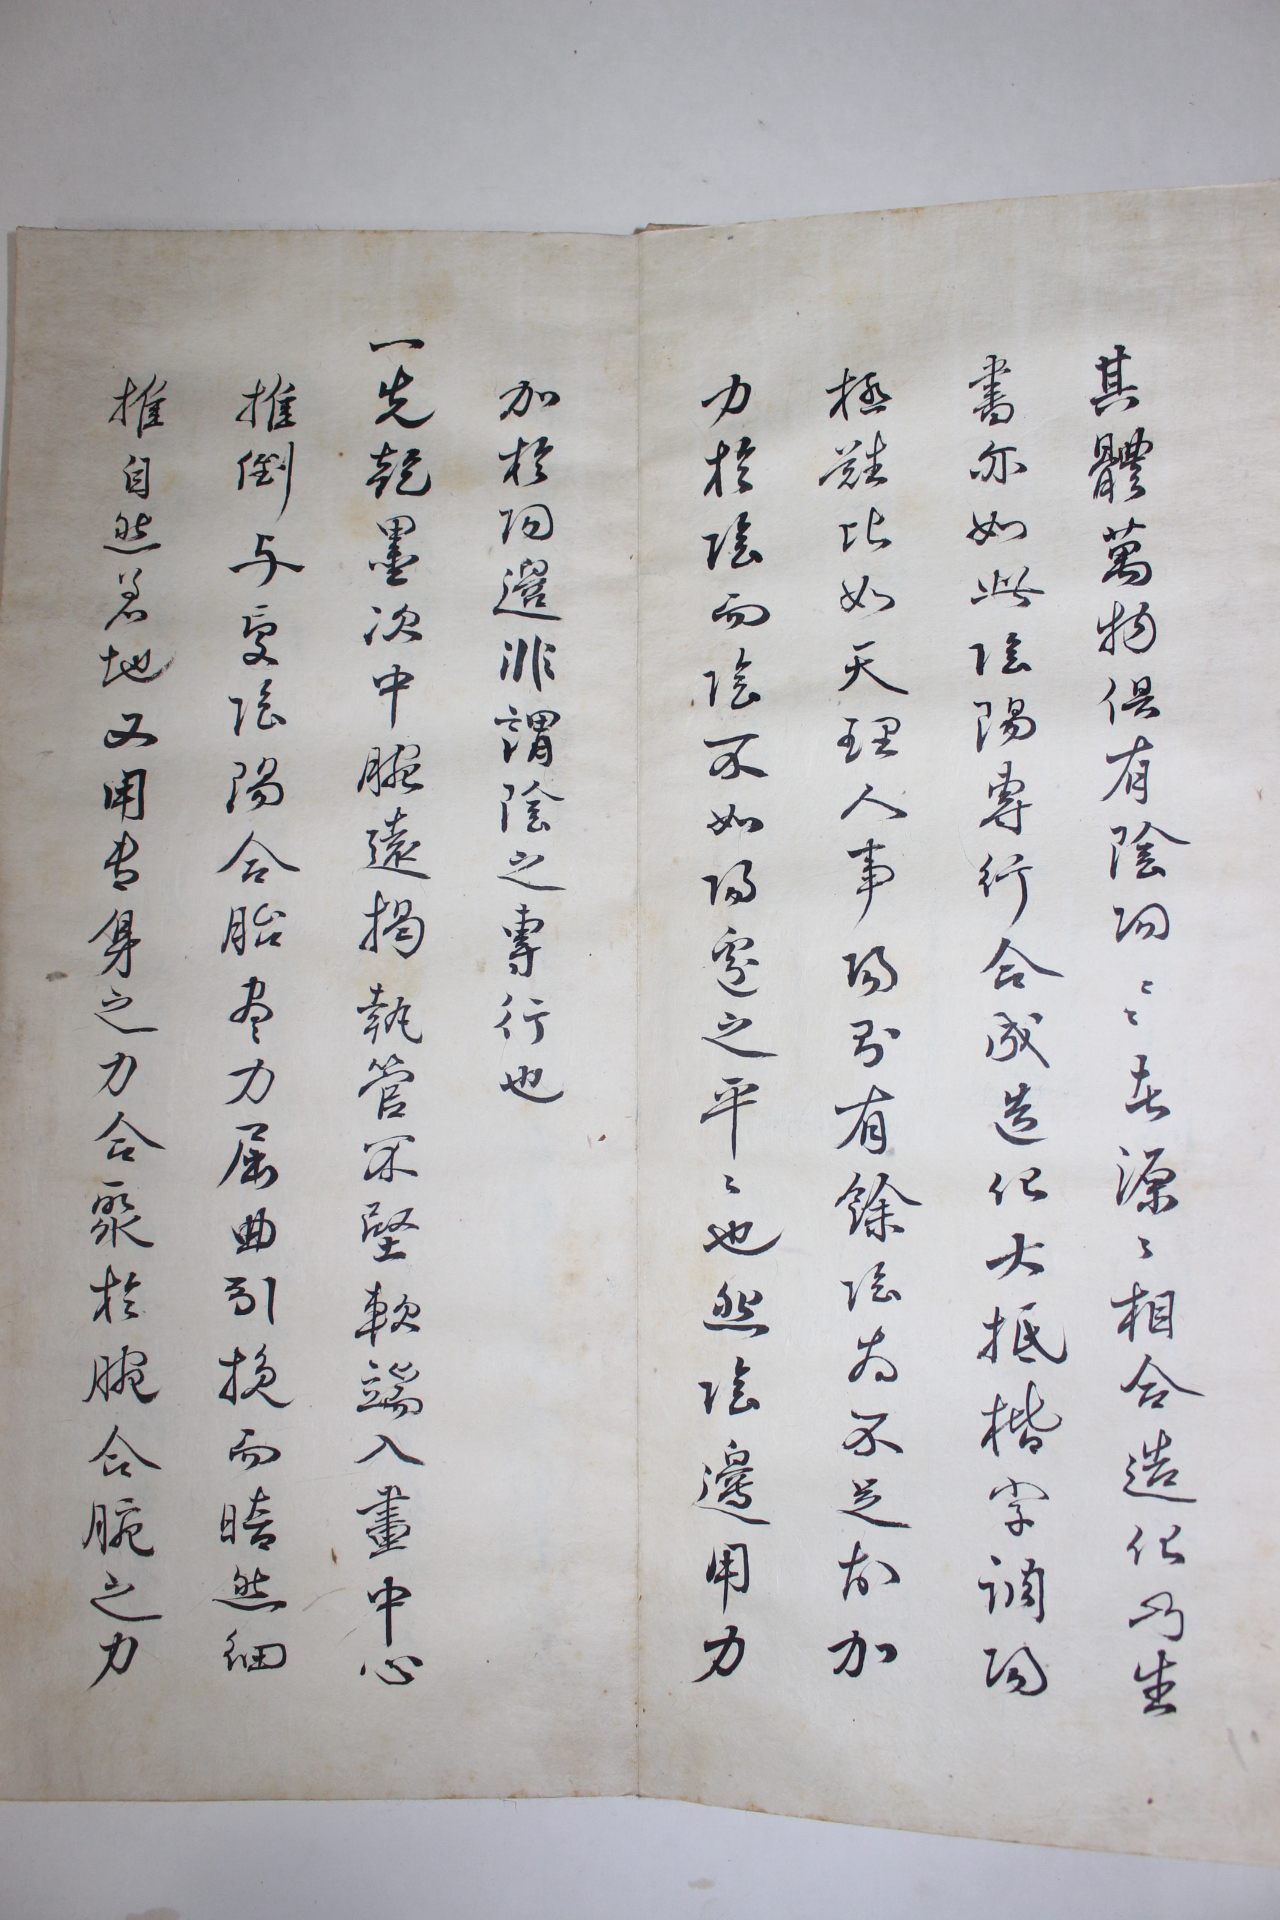 其體萬物俱有陰阳〻〻根源〻相合造化乃生
書亦如此陰陽專行合成造化大抵楷字調阳
極難比如天理人事阳則有餘陰爲不足故加
力於陰而陰不如阳邊之平〻也然陰邊用力
加於阳邊非謂陰之專行也
一先乾墨次中腕遠揭執管不堅軟端入畫中心
推倒与受陰陽合胎盡力屈曲引換而暗然細
推自然着地又用吉身之力合聚於腕合腕之力